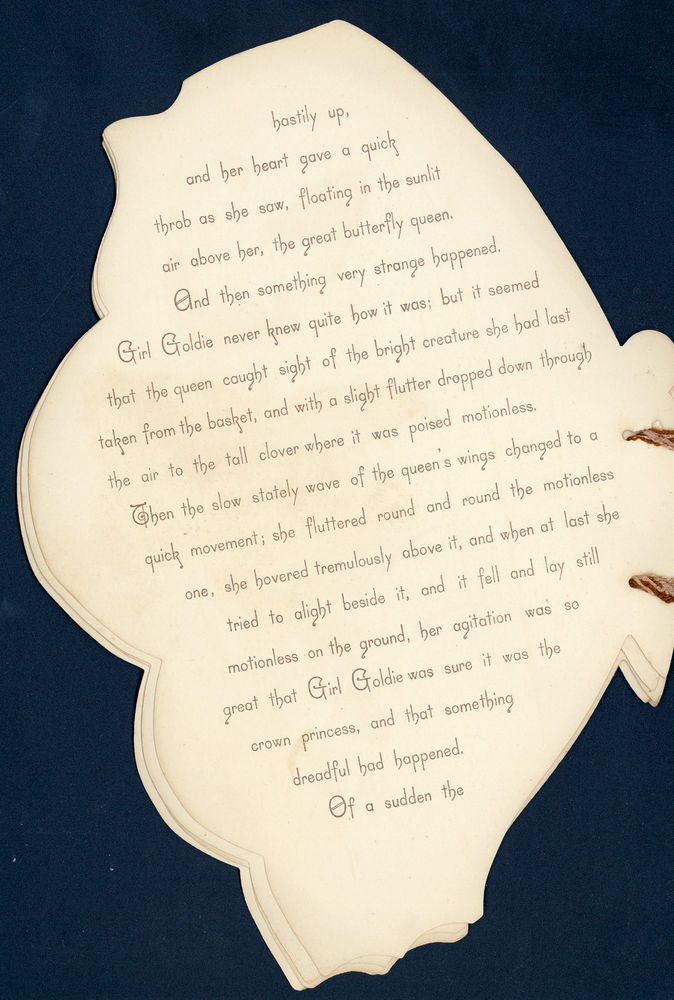 hastily up,
and her heart gave a quick
throb as she saw, floating in the sunlit
air above her, the great butterfly queen.
And then something very strange happened.
Girl Goldie never knew quite how it was; but it seemed
that the queen caught sight of the bright creature she had last
taken from the basket, and with a slight flutter dropped down through
the air to the tall clover where it was poised motionless.
Then the slow stately wave of the queen's wings changed to a
quick movement; she fluttered round and round the motionless
one, she hovered tremulously above it, and when at last she
tried to alight beside it, and it fell and lay still
motionless on the ground, her agitation was so
great that Girl Goldie was sure it was the
crown princess, and that something
dreadful had happened.
Of a sudden the